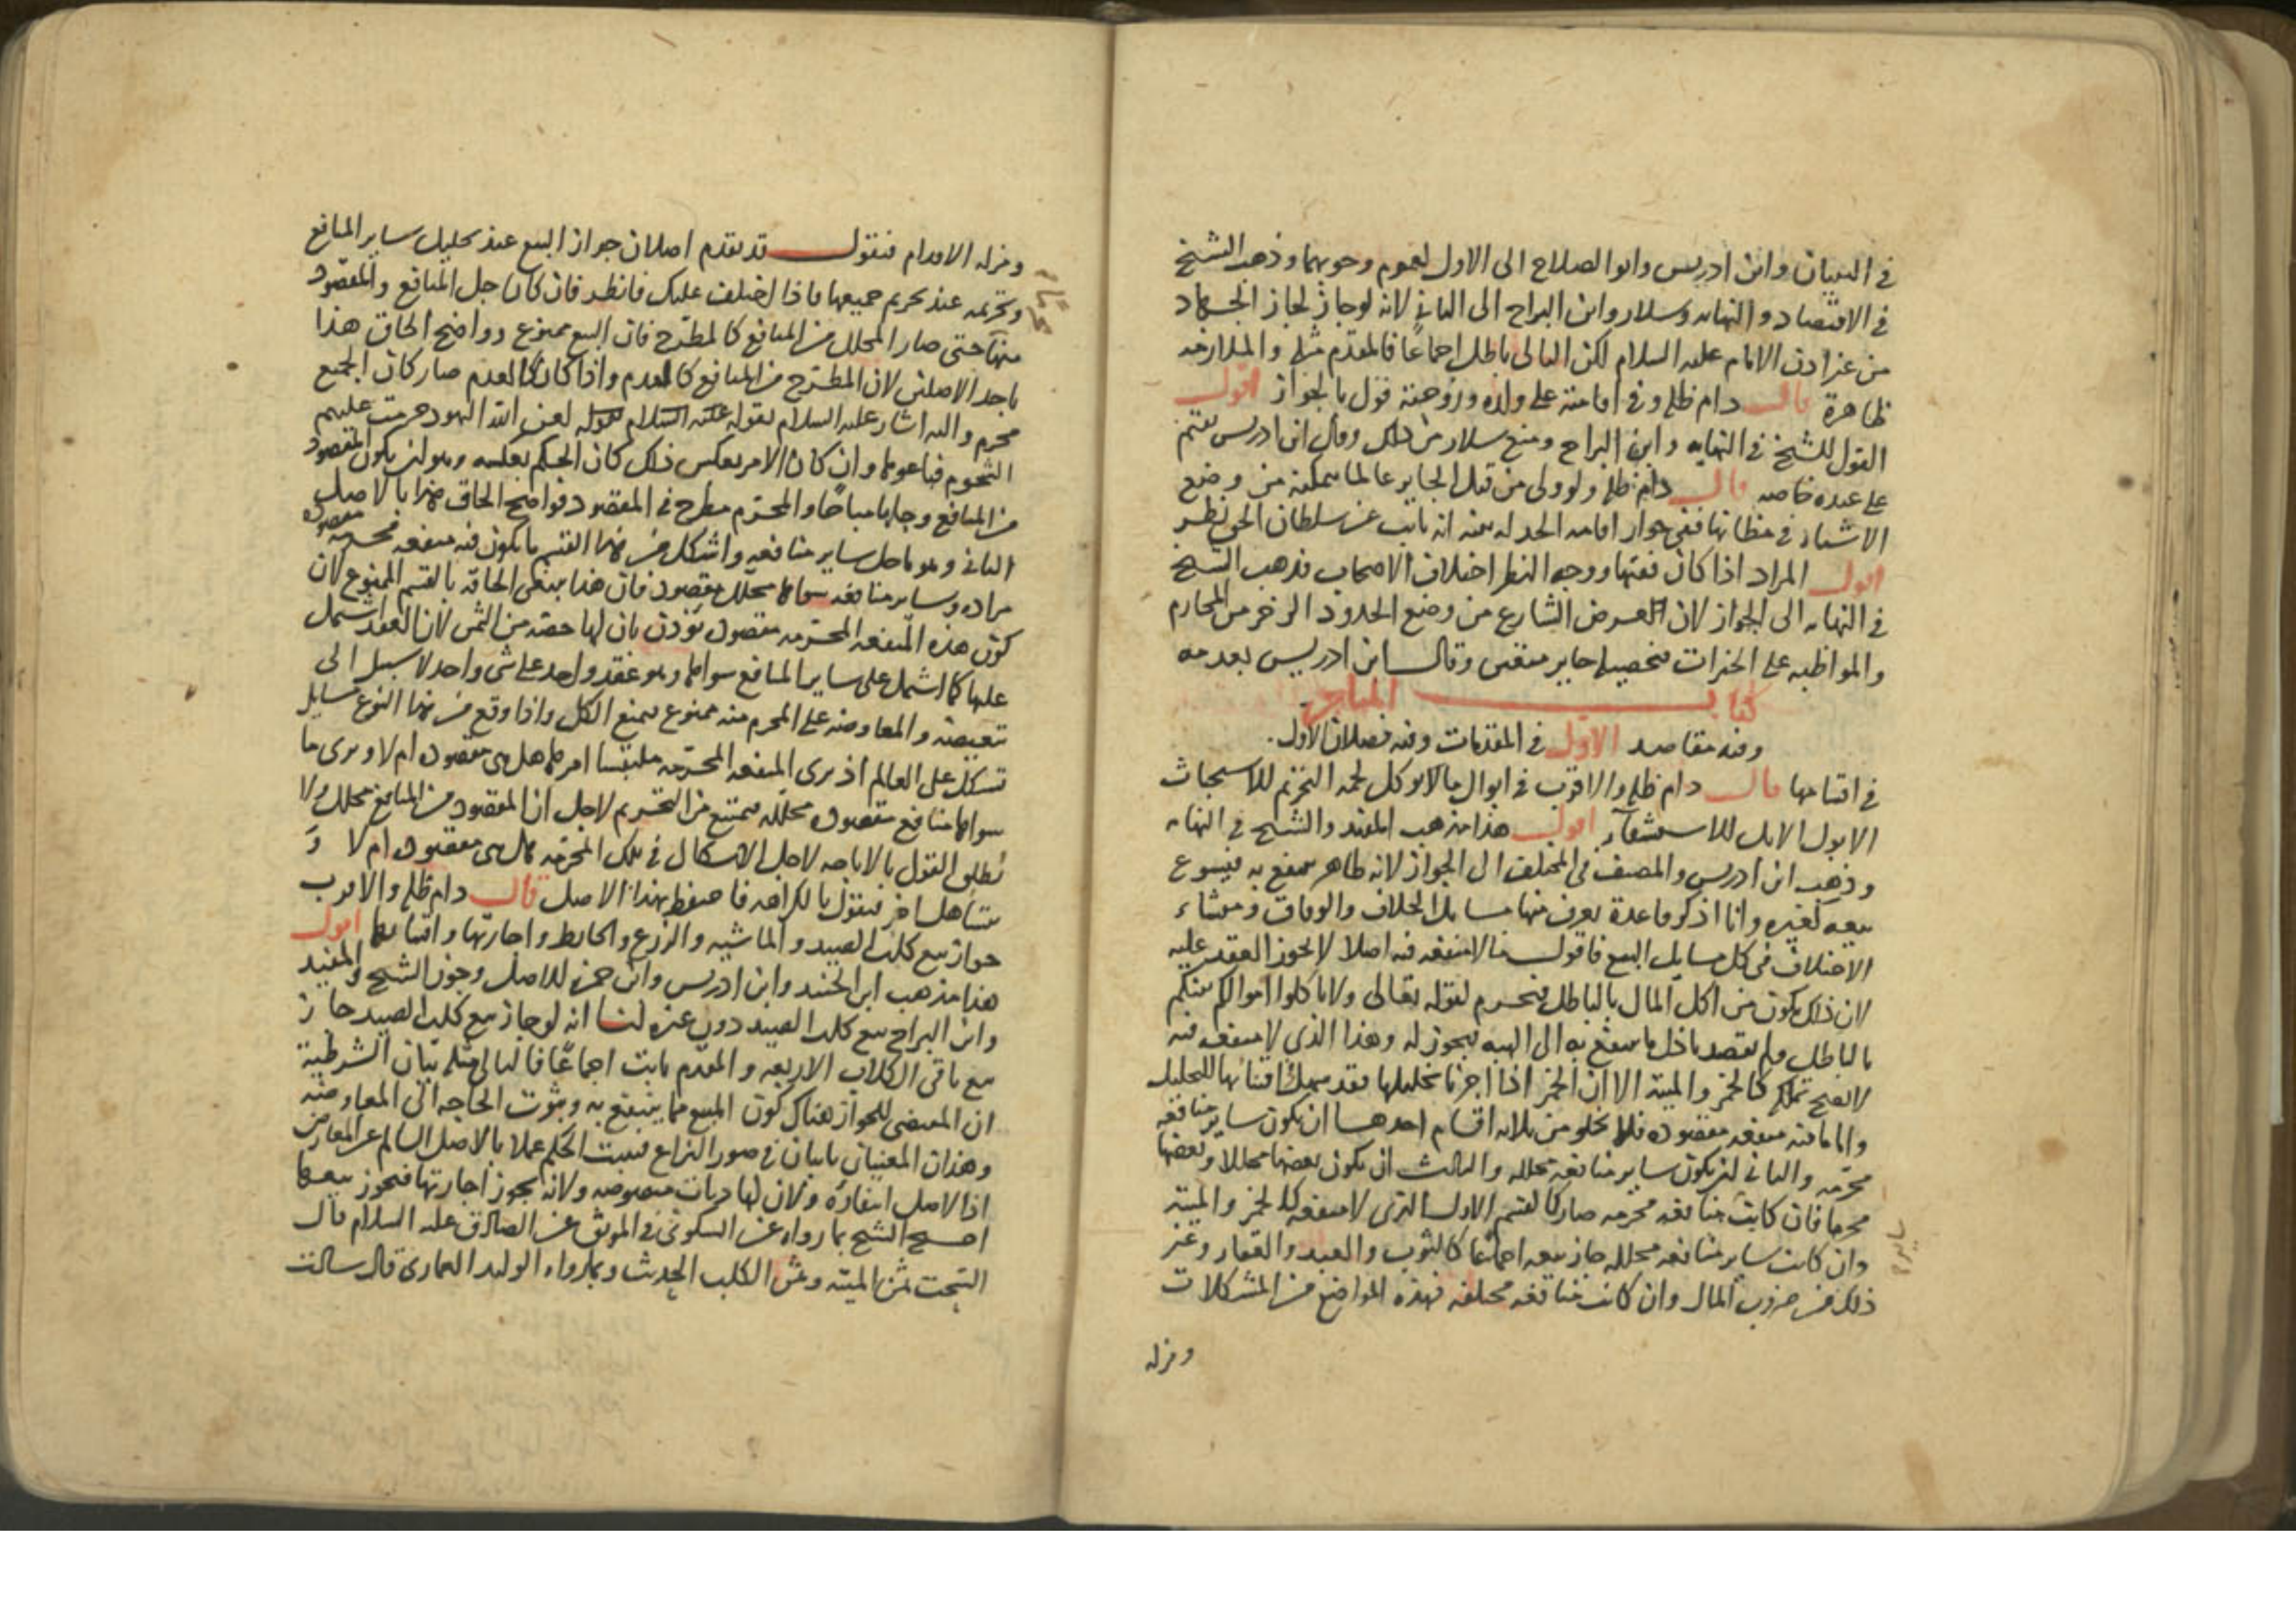 في التبيان وابن ادريس وابو الصلاح الى الاول لعموم وجوبهما وذهب الشيخ
في الاقتصاد والنهاية وسلار وابن البراج الى الثاني لانه لو جاز لجاز الجهاد
من غير اذن الامام عليه السلام لكن التالي باطل اجماعا فالمقدم مثله والملازمة
ظاهرة قال دام ظله وفي اقامته على ولده وزوجته قول بالجواز اقول
القول للشيخ في النهاية وابن البراج ومنع سلار من ذلك وقال ابن ادريس يقيم
على عبده خاصة قال دام ظله ولو ولي من قبل الجاير عالما بتمكنه من وضع
الاشياء في مظانها ففي جواز اقامة الحد له بنية انه نايب عن سلطان الحق نظر
اقول المراد اذا كان فقيها ووجه النظر اختلاف الاصحاب فذهب الشيخ
في النهاية الى الجواز لان الغرض الشارع من وضع الحدود الزجر من المحارم
والمواظبة على الخيرات فتحصيله جايز متعين وقال ابن ادريس بعدمه
كتاب المتاجر
وفيه مقاصد الاول في المقدمات وفيه فصلان الاول
في اقسامها قال دام ظله والاقرب في ابوال ما لا يوكل لحمه التحريم للاستخباث
الا بول الابل للاستشفاء اقول هذا مذهب المفيد والشيخ في النهاية
وذهب ابن ادريس والمصنف في المختلف الى الجواز لانه طاهر ينتفع به فيسوغ
بيعه كغيره وانا اذكر قاعدة يعرف منها مسايل الخلاف والوفاق ومنشاء
الاختلاف في كل مسايل البيع فاقول ما لا منفعة فيه اصلا لا يجوز العقد عليه
لان ذلك يكون من اكل المال بالباطل فيحرم لقوله تعالى ولا تاكلوا اموالكم بينكم
بالباطل ولم يقصد باذل ما ينتفع به الى الهبة فيجوز له وهذا الذي لا منفعة فيه
لا يصح تملكه كالخمر والميتة الا ان الخمر اذا اجزنا تخليلها فقد سهل اقتنائها للتخليل
واما ما فيه منفعة مقصودة فلا يخلو من ثلاثة اقسام احدها ان يكون ساير منافعه
محرمة والثاني ان يكون ساير منافعه محللة والثالث ان يكون بعضها محللا وبعضها
محرما فان كانت منافعه محرمة صار كالقسم الاول الذي لا منفعة له كالخمر والميتة
وان كانت ساير منافعه محللة جاز بيعه اجماعا كالثوب والعبد والعقار وغير
ذلك من ضروب المال وان كانت منافعه مختلفة فهذه المواضع من المشكلات
ومزلة
ومزلة الاقدام فنقول قد تقدم اصلان جواز البيع عند تحليل ساير المنافع
وتحريمه عند تحريم جميعها فاذا اختلف عليك فانظر فان كان جل المنافع والمقصود
منها حتى صار المحلل من المنافع كالمطرح فان البيع ممنوع وواضح الحاق هذا
باحد الاصلين لان المطرح من المنافع كالعدم واذا كان كالعدم صار كان الجميع
محرم واليه اشار عليه السلام بقوله عليه السلام لعن الله اليهود حرمت عليهم
الشحوم فباعوها وان كان الامر بعكس ذلك كان الحكم بعكسه وهو ان يكون المقصود
من المنافع وجلها مباحا والمحرم مطرح في المقصود فواضح الحاق هذا بالاصل
الثاني وهو ما حل ساير منافعه واشكل من هذا القسم ما يكون فيه منفعة محرمة مقصودة
مرادة وساير منافعه سواها محلل مقصود فان هذا ينبغي الحاقه بالقسم الممنوع لان
كون هذه المنفعة المحرمة مقصودة يؤذن بان لها حصة من الثمن لان العقد اشتمل
عليها كما اشتمل على ساير المنافع سواها وهو عقد واحد على شي واحد لا سبيل الى
تبعيضه والمعاوضة على المحرم منه ممنوع فمنع الكل واذا وقع من هذا النوع مسايل
تشكل على العالم اذ يرى المنفعة المحرمة ملتبسا امرها هل هي مقصودة ام لا ويرى ما
سواها منافع مقصودة محللة فيمتنع من التحريم لاجل ان المقصود من المنافع محلل ولا
يطلق القول بالاباحة لاجل الاشكال في تلك المحرمة هل هي مقصودة ام لا و
يتساهل اخر فيقول بالكراهة فاحتفظ بهذا الاصل قال دام ظله والاقرب
جواز بيع كلب الصيد والماشية والزرع والحايط واجارتها واقتنائها اقول
هذا مذهب ابن الجنيد وابن ادريس وابن حمزة للاصل وجوز الشيخ والمفيد
وابن البراج بيع كلب الصيد دون غيره لنا انه لو جاز بيع كلب الصيد جاز
بيع باقي الكلاب الاربعة والمقدم ثابت اجماعا فالتالي مثله بيان الشرطية
ان المقتضي للجواز هناك كون المبيع مما ينتفع به وثبوت الحاجة الى المعاوضة
وهذان المعنيان ثابتان في صور النزاع فيثبت الحكم عملا بالاصل السالم عن المعارض
اذا لاصل انتفاؤه ولان لها ديات منصوصة ولانه يجوز اجارتها فيجوز بيعها
احتج الشيخ بما رواه عن السكوني في الموثق عن الصادق عليه السلام قال
السحت ثمن الميتة وثمن الكلب الحديث وبما رواه الوليد العماري قال سالت